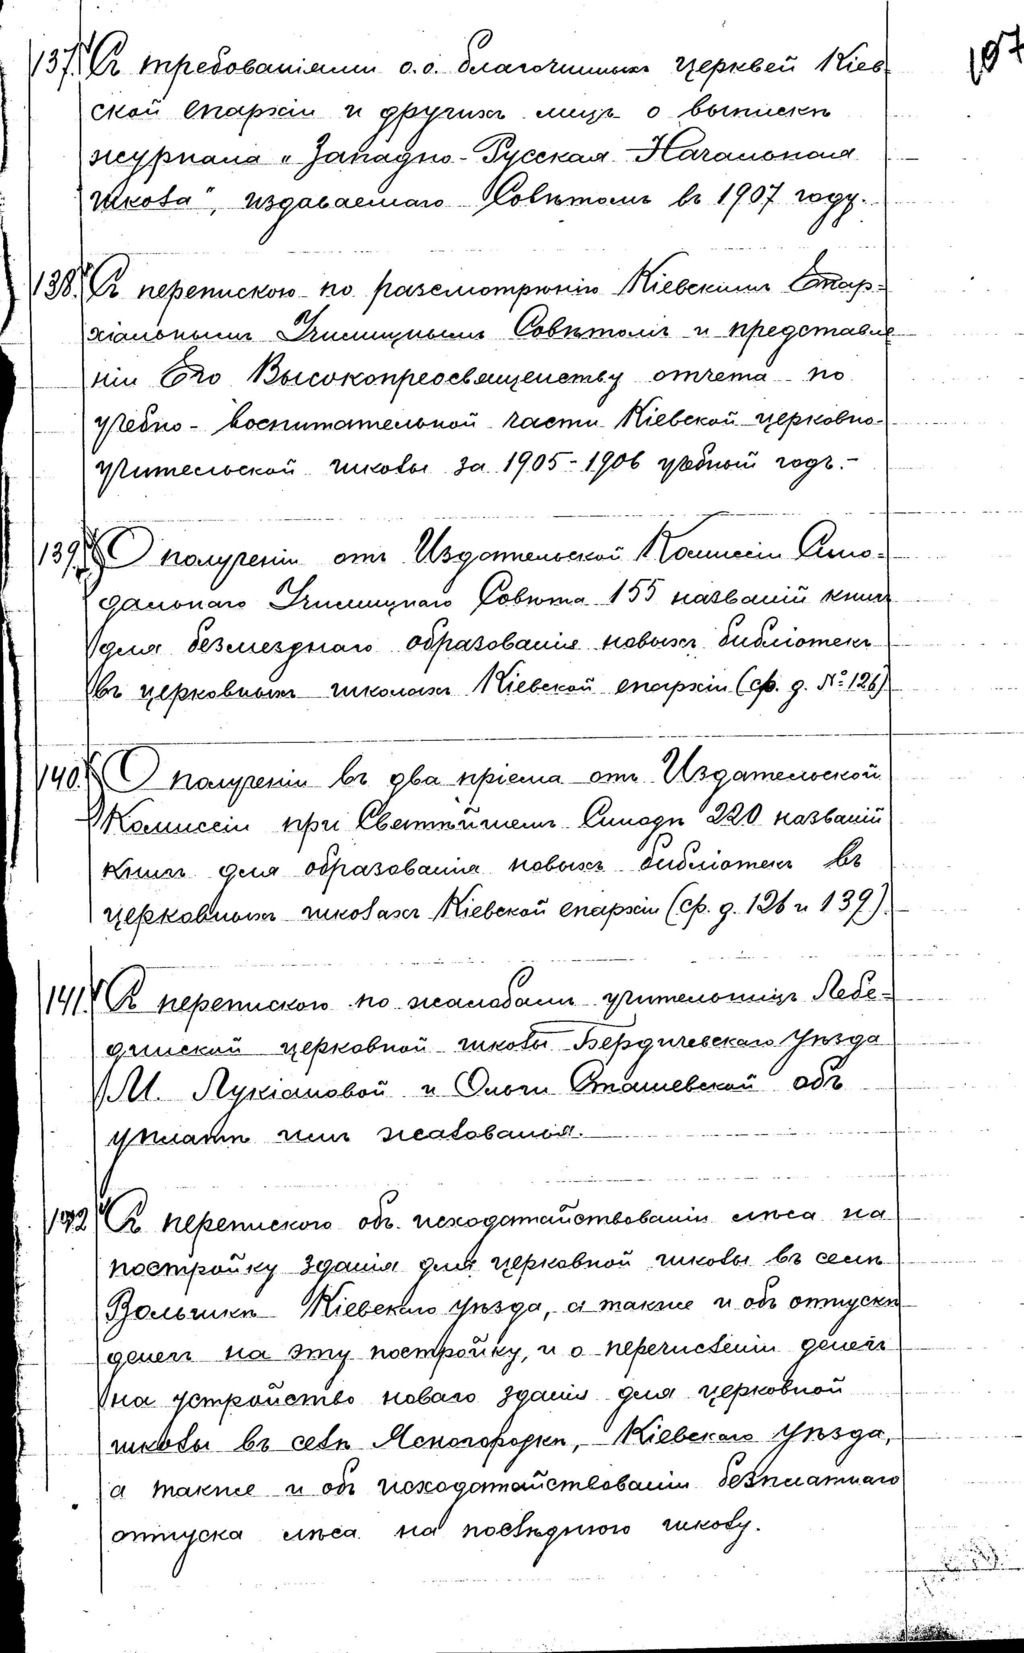 107
137. Съ требованіями о.о. благочинныхъ церквей Кіев-
ской епархіи и другихъ лицъ о выпискѣ
журнала „Западно-Русская Начальная
школа", издаваемаго Совѣтомъ въ 1907 году.
138. Съ перепискою по разсмотрѣнію Кіевскимъ Епар-
хіальнымъ Училищнымъ Совѣтомъ и представле
ніи Его Высокопреосвященству отчета по
учебно-воспитательной части Кіевской церковно-
учительской школы за 1905-1906 учебный годъ.-
139. О полученіи отъ Издательской Комиссіи Сино-
дальнаго Училищнаго Совѣта 155 названій книгъ
для безмезднаго образованія новыхъ библіотекъ
въ церковныхъ школахъ Кіевской епархіи (ср. д. № 126)
140. О полученіи въ два пріема отъ Издательской
Комиссіи при Святѣйшемъ Синодѣ 220 названій
книгъ для образованія новыхъ библіотекъ въ
церковныхъ школахъ Кіевской епархіи (ср. д. 126 и 139).
141. Съ перепискою по жалобамъ учительницъ Лебе-
динской церковной школы Бердичевскаго уѣзда
М. Лукіановой и Ольги Сташевской объ
уплатѣ имъ жалованья.
142 Съ перепискою объ исходатайствованіи лѣса на
постройку зданія для церковной школы въ селѣ
Вольшкѣ Кіевскаго уѣзда, а также и объ отпускѣ
денегъ на эту постройку, и о перечисленіи денегъ
на устройство новаго зданія для церковной
школы въ селѣ Ясногородкѣ, Кіевскаго уѣзда,
а также и объ исходатайствованіи безплатнаго
отпуска лѣса на послѣднюю школу.